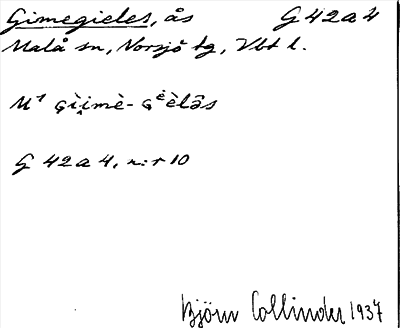 Gimegieles, ås G 42 a 4
Malå sn, Norsjö tg, Vbt l.
M¹ gìi̭mè-
G 42 a 4, n:r 10
Björn Collinder 1937